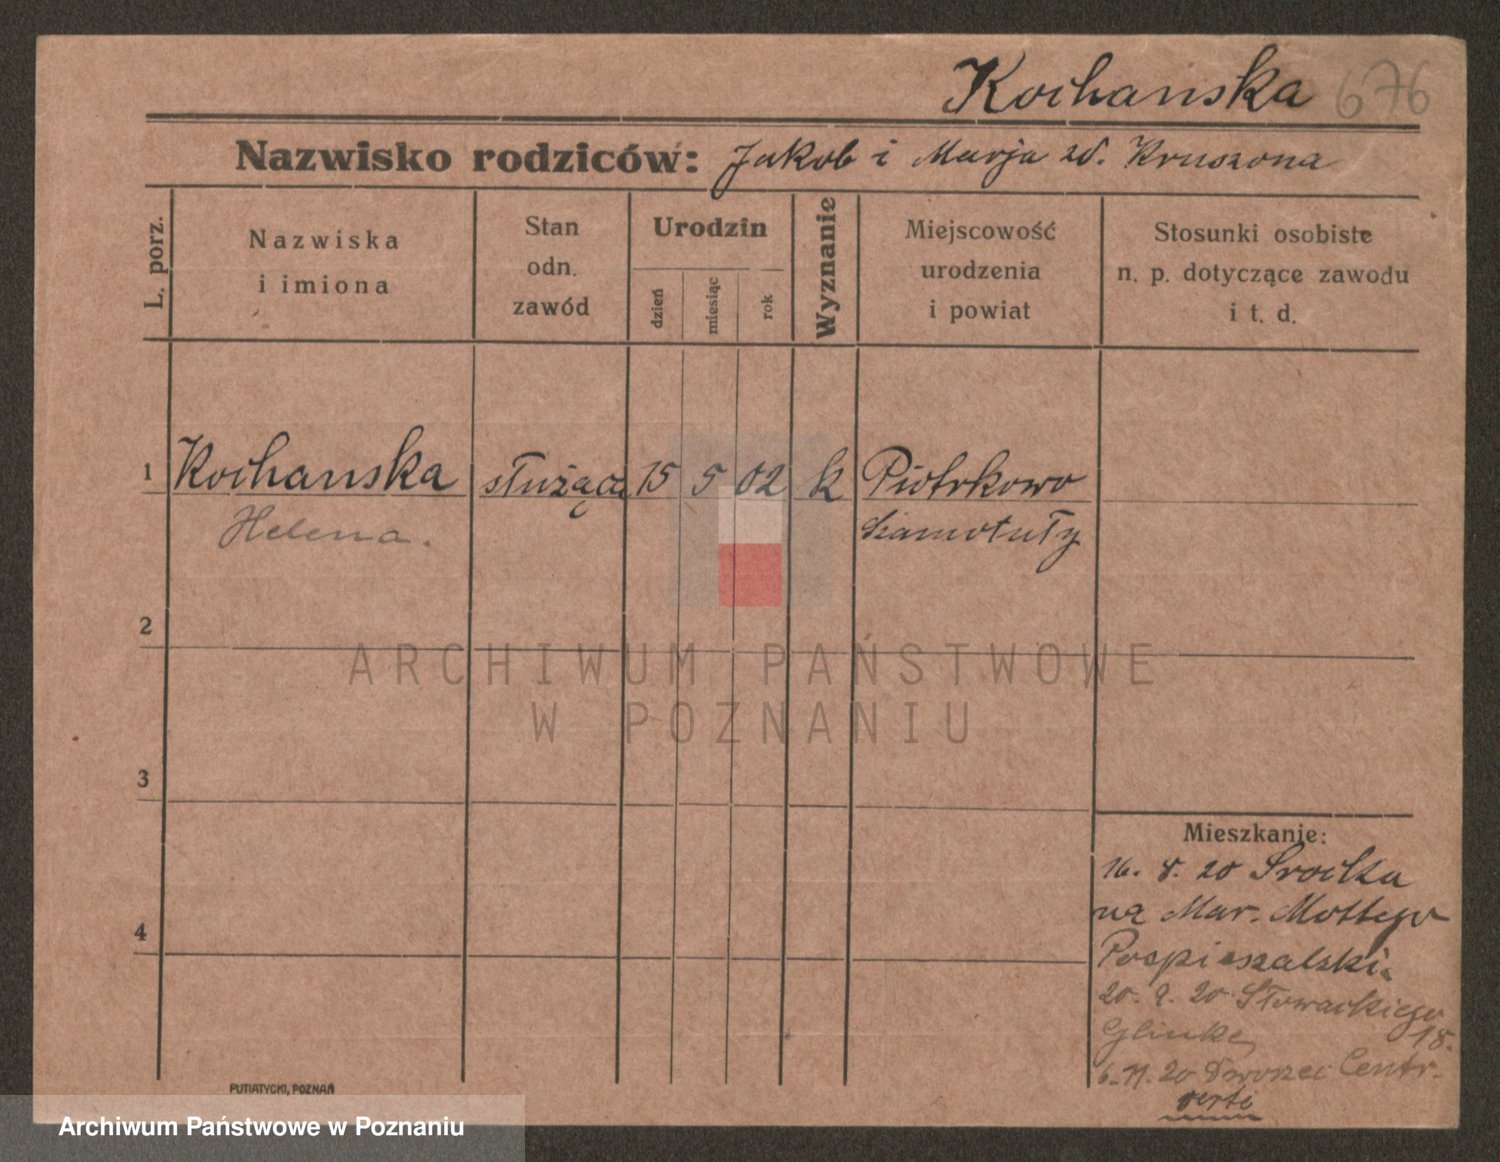 Kochańska 676
Nazwisko rodziców: Jakob i Marja zd. Kruszona
L. porz.
Nazwiska
i imiona
Stan
odn.
zawód
Urodzin
dzień
miesiąc
rok
Wyznanie
Miejscowość
urodzenia
i powiat
Stosunki osobiste
n. p. dotyczące zawodu
i t. d.
1 Kochanska służąca 15 5 02 k Piotrkowo
Helena. Szamotuły
2
ARCHIWUM PAŃSTWOWE
W POZNANIU
3
Mieszkanie:
16. 8. 20
na Mar. Mottego
4
Pospieszalski.
20. 9. 20 Słowackiego
18.
6.11.20 Dworzec Centr.
verti
PUTIATYCKI, POZNAŃ
Archiwum Państwowe w Poznaniu